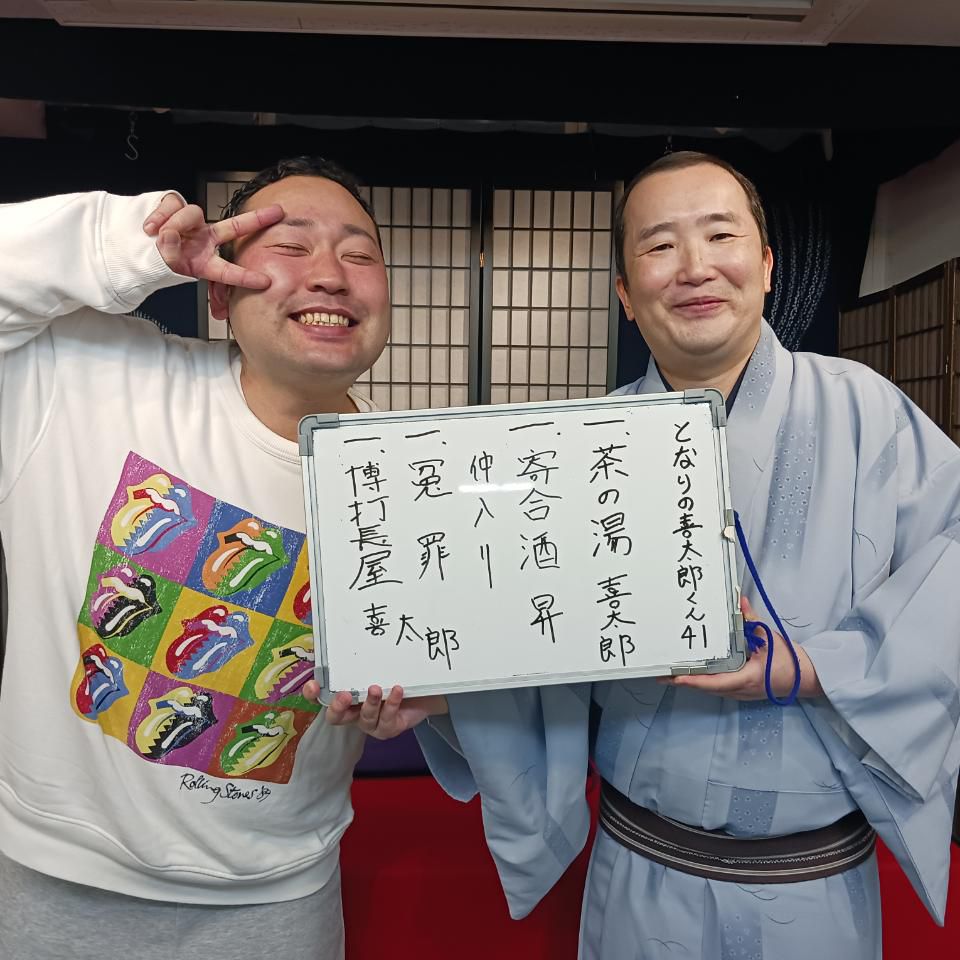 となりの喜太郎くん41
一、茶の湯 喜太郎
一、寄合酒 昇
仲入り
一、冤罪
一、博打長屋 喜太郎
Rolling Stones '89